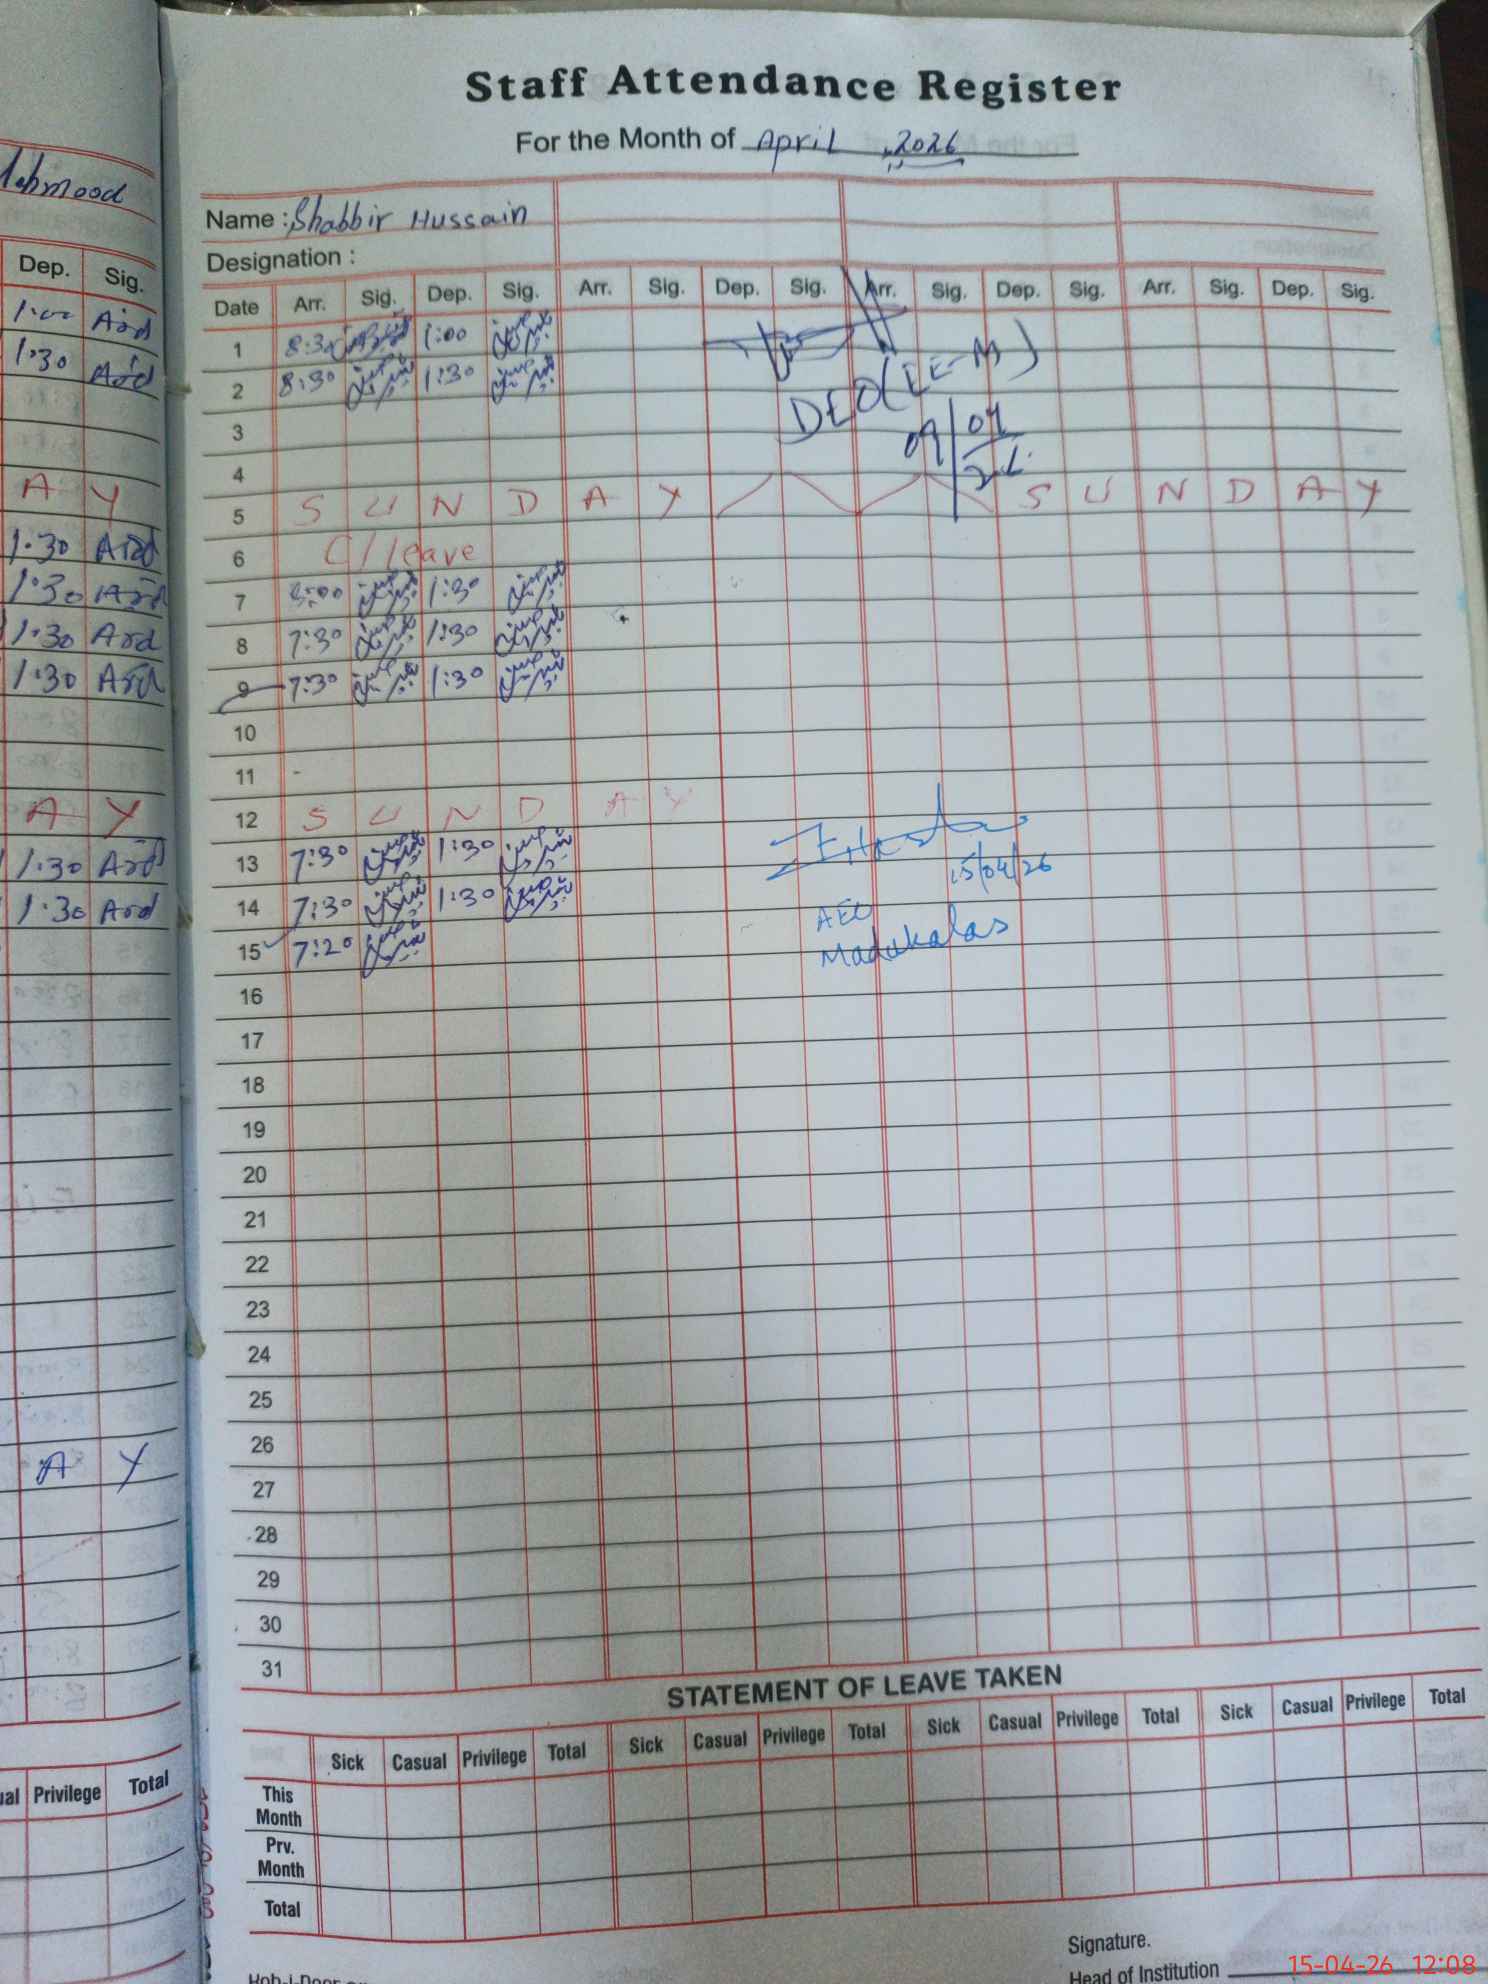 Staff Attendance Register
For the Month of April, 2026
Name : Shabbir Hussain
Designation :
Date Arr. Sig. Dep. Sig. Arr. Sig. Dep. Sig. Arr. Sig. Dep. Sig. Arr. Sig. Dep. Sig.
1 8:30 1:00
2 8:30 شبیر حسین 1:30 شبیر حسین
DEO(EE-M)
3
09/04
4
26
5 S U N D A Y S U N D A Y
6 C/leave
7 8:00 شبیر حسین 1:30 شبیر حسین
8 7:30 شبیر حسین 1:30 شبیر حسین
9 7:30 شبیر حسین 1:30 شبیر حسین
10
11
12 S U N D A Y
13 7:30 شبیر حسین 1:30 شبیر حسین
15/04/26
14 7:30 شبیر حسین 1:30 شبیر حسین
AEO
15 7:20 شبیر حسین
Madukalas
16
17
18
19
20
21
22
23
24
25
26
27
28
29
30
31
STATEMENT OF LEAVE TAKEN
Sick Casual Privilege Total Sick Casual Privilege Total Sick Casual Privilege Total Sick Casual Privilege Total
This Month
Prv. Month
Total
Signature.
Head of Institution
Mehmood
Dep. Sig.
1:00 Ard
1:30 Ard
A Y
1:30 Ard
1:30 Ard
1:30 Ard
1:30 Ard
A Y
1:30 Ard
1:30 Ard
A Y
Privilege Total
15-04-26 12:08